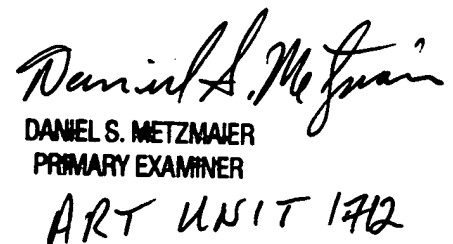 Daniel S. Metzmaier
DANIEL S. METZMAIER
PRIMARY EXAMINER
ART UNIT 1712